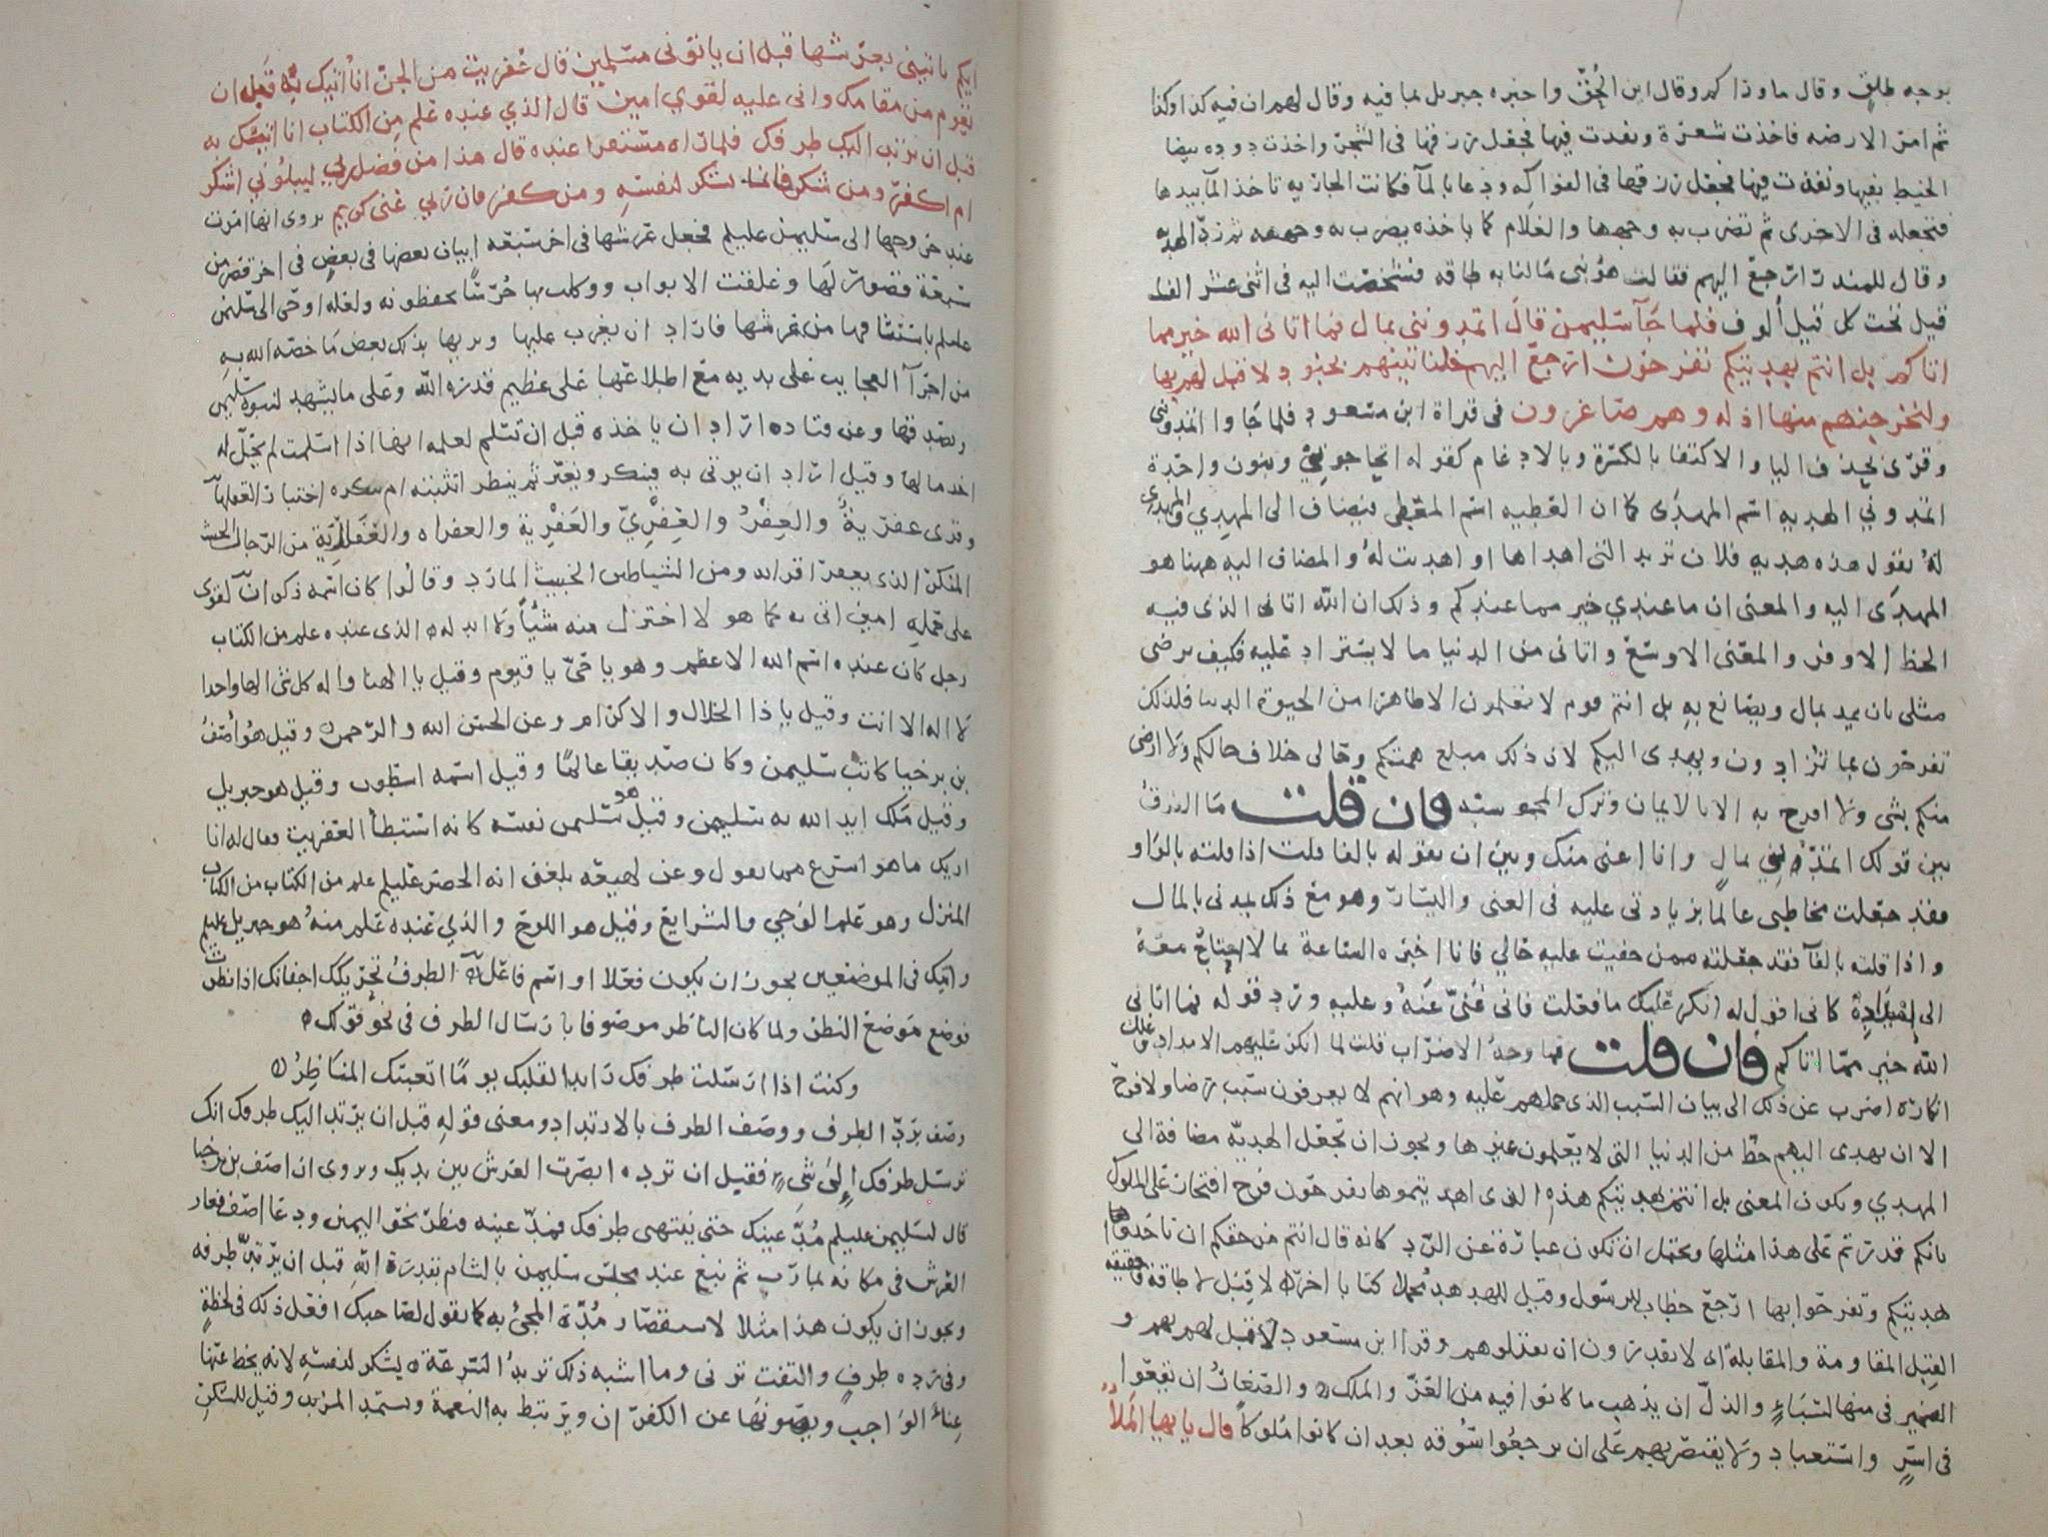 بوجه طلق وقال ما وراكم وقال اين الحق واخبره جبريل بما فيه وقال لهم ان فيه كذا وكذا
ثم امر الارضه فاخذت شعرة ونفدت فيها فجعل رزقها في الشجر واخذت دوده بيضا
الخيط بفيها ونفذت فيها فجعل رزقها في الفواكه ودعا بالمآ فكانت الجاريه تاخذ المآ بيدها
فتجعله في الاخرى ثم تضرب به وجهها والغلام كما ياخذه يضرب به وجهه ثم رد الهديه
وقال للمنذر ارجع اليهم فقالت هو نبي مالنا به طاقه فشخصت اليه في اثني عشر الف
قيل تحت كل قيل ألوف فلما جآ سليمن قال اتمدونني بمال فما اتاني الله خير مما
اتاكم بل انتم بهديتكم تفرحون ارجع اليهم فلنا تينهم بجنود لا قبل لهم بها
ولنخرجنهم منها اذله وهم صاغرون في قراة ابن مسعود فلما جاوا اتمدونني
وقرى بحذف اليا والاكتفا بالكسرة وبالادغام كقوله اتحاجونّي وبنون واحدة
اتمدوني الهديه اسم المهدى كما ان العطيه اسم المعطى فيضاف الى المهدي والمهدى
له يقول هذه هديه فلان تريد التي اهداها او اهديت له والمضاف اليه ههنا هو
المهدى اليه والمعنى ان ما عندي خير مما عندكم وذلك ان الله اتاني الذي فيه
الحظ الاوفر والمغنى الاوسع واتاني من الدنيا ما لا يستزاد عليه فكيف يرضى
مثلي بان يمد بمال ويصانع به بل انتم قوم لا تعلمون الا ظاهرا من الحيوة الدنيا فلذلك
تفرحون بما تزادون ويهدى اليكم لان ذلك مبلغ همتكم وحالي خلاف حالكم ولا ارضى
منكم بشي ولا افرح به الا بالايمان وترك المجوسيه فان قلت ما الفرق
بين قولك اتمدني بمال وانا اغنى منك وبين ان يقوله بالفا قلت اذا قلته بالواو
فقد جعلت مخاطبي عالما بزيادتي عليه في الغنى واليسار وهو مع ذلك يمدني بالمال
واذا قلته بالفآ فقد جعلته ممن خفيت عليه حالي فانا اخبره الساعة بما لا احتاج معه
الى امداده كاني اقول له انكر عليك ما فعلت فاني غني عنه وعليه ورد قوله فما اتاني
الله خير مما اتاكم فان قلت فما وجه الاضراب قلت لما انكر عليهم الامداد وعلل
انكاره اضرب عن ذلك الى بيان السبب الذي حملهم عليه وهو انهم لا يعرفون سبب رضا ولا فرح
الا ان يهدى اليهم حظ من الدنيا التي لا يعلمون غيرها ويجوز ان تجعل الهديّه مضافة الى
المهدي ويكون المعنى بل انتم بهديتكم هذه التي اهديتموها تفرحون فرح افتخار على الملوك
بانكم قدرتم على هذا مثلها ويحتمل ان تكون عبارة عن الرد كانه قال انتم من حقكم ان تاخذوا
هديتكم وتفرحوا بها ارجع خطاب للرسول وقيل للهدهد محملا كتابا اخر لا قبل لا طاقة وحقيقه
القبل المقاومة والمقابلة اى لا يقدرون ان يقابلوهم وقرا ابن مسعود لا قبل لهم بهم و
الضمير في منها لسباء والذل ان يذهب ما كانوا فيه من العز والملك والصغار ان يقعوا
في اسر واستعباد ولا يقتصر بهم على ان يرجعوا سوقه بعد ان كانوا ملوكا قال يا يها الملأ
ايكم ياتيني بعرشها قبل ان ياتوني مسلمين قال عفريت من الجن انا اتيك به قبل ان
تقوم من مقامك واني عليه لقوي امين قال الذي عنده علم من الكتاب انا اتيك به
قبل ان يرتد اليك طرفك فلما راه مستقرا عنده قال هذا من فضل ربي ليبلوني اشكر
ام اكفر ومن شكر فانما يشكر لنفسه ومن كفر فان ربي غني كريم يروى انها امرت
عند خروجها الى سليمن عليلم فجعل عرشها في اخر سبعه ابيات بعضها في بعض في اخر قصر من
سبعة قصور لها وغلقت الابواب ووكلت بها حرسا يحفظونه ولعله اوحي الى سليمن
عليلم باستيثاقها من عرشها فاراد ان يغرب عليها ويريها بذلك بعض ما خصه الله به
من اجرآ العجايب على يديه مع اطلاعها على عظيم قدرة الله وعلى ما يشهد لنبوة سليمن
ويصدقها وعن قتاده اراد ان ياخذه قبل ان تسلم لعلمه انها اذا اسلمت لم يحل له
اخذ مالها وقيل اراد ان يوتى به فينكر ويغير ثم ينظر اتثبته ام تنكره اختبارا لعقلها
وقرى عفرية والعفر والعفري والعفرية والعفراه والعفارية من الرجال الخبيث
المنكر الذي يعفر اقرانه ومن الشياطين الخبيث المارد وقالوا كان اسمه ذكوان لقوي
على حمله امين اتي به كما هو لا اختزل منه شيا ولا ابدله الذي عنده علم من الكتاب
رجل كان عنده اسم الله الاعظم وهو يا حي يا قيوم وقيل يا الهنا واله كل شي الها واحدا
لا اله الا انت وقيل يا ذا الجلال والاكرام وعن الحسن الله والرحمن وقيل هو اصف
بن برخيا كاتب سليمن وكان صديقا عالما وقيل اسمه اسطوم وقيل هو جبريل
وقيل ملك ايد الله به سليمن وقيل هو سليمن نفسه كانه استبطأ العفريت فقال له انا
اريك ما هو اسرع مما تقول وعن لهيعه بلغني انه الخضر عليلم علم من الكتاب من الكتاب
المنزل وهو علم الوحي والشرايع وقيل هو اللوح والذي عنده علم منه هو جبريل عليلم
واتيك في الموضعين يجوز ان يكون فعلا او اسم فاعل الطرف تحريكك اجفانك اذا نظرت
فوضع موضع النظر ولما كان الناظر موصوفا بارسال الطرف في نحو قولك
وكنت اذا ارسلت طرفك رايدا لقلبك يوما اتعبتك المناظر
وصف برد الطرف ووصف الطرف بالارتداد ومعنى قوله قبل ان يرتد اليك طرفك انك
ترسل طرفك الى شي فقبل ان ترده ابصرت العرش بين يديك ويروى ان اصف بن برخيا
قال لسليمن عليلم مُدّ عينيك حتى ينتهي طرفك فمد عينيه فنظر نحو اليمن ودعا اصف فغار
العرش في مكانه بمارب ثم نبع عند مجلس سليمن بالشام بقدرة الله قبل ان يرتد طرفه
ويجوز ان يكون هذا مثلا لاستقصار مُدّة المجئ به كما تقول لصاحبك افعل ذلك في لحظة
وفي ردة طرف والتفت ترني وما اشبه ذلك تريد السرعة يشكر لنفسه لانه يحط عنها
عبأ الواجب ويصونها عن الكفران ويرتبط به النعمة ويستمد المزيد وقيل للشكر